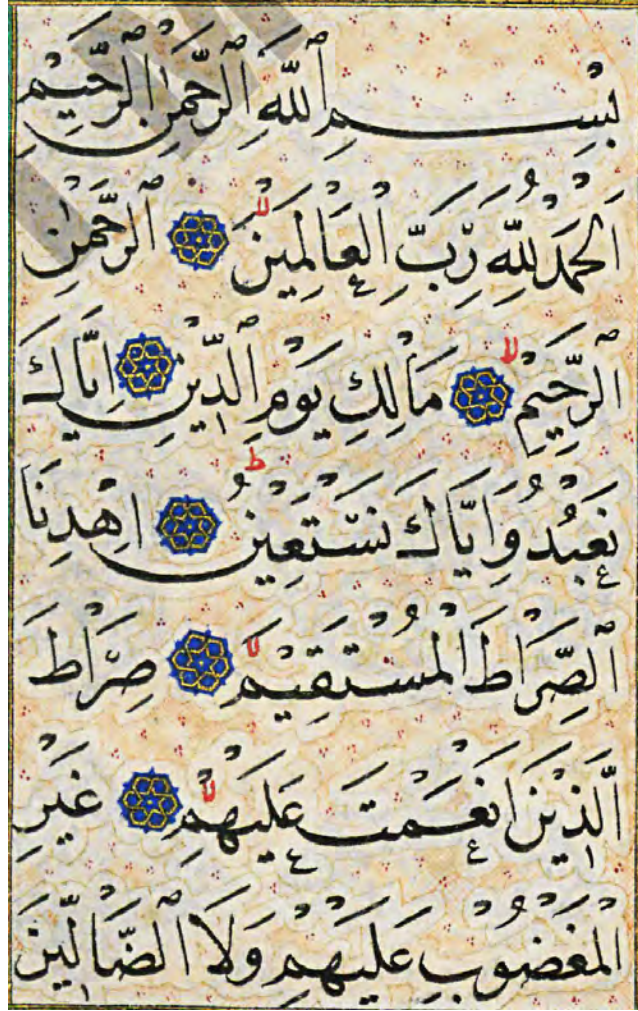 بِسْمِ ٱللَّهِ ٱلرَّحْمٰنِ ٱلرَّحِيمِ
اَلْحَمْدُ لِلّٰهِ رَبِّ الْعَالَمِينَۙ ٱلرَّحْمٰنِ
ٱلرَّحِيمِۙ مَالِكِ يَوْمِ ٱلدِّينِ اِيَّاكَ
نَعْبُدُ وَاِيَّاكَ نَسْتَعِينُۜ اِهْدِنَا
ٱلصِّرَاطَ الْمُسْتَقِيمَۙ صِرَاطَ
ٱلَّذِينَ اَنْعَمْتَ عَلَيْهِمْۙ غَيْرِ
الْمَغْضُوبِ عَلَيْهِمْ وَلَا ٱلضَّالِّينَ